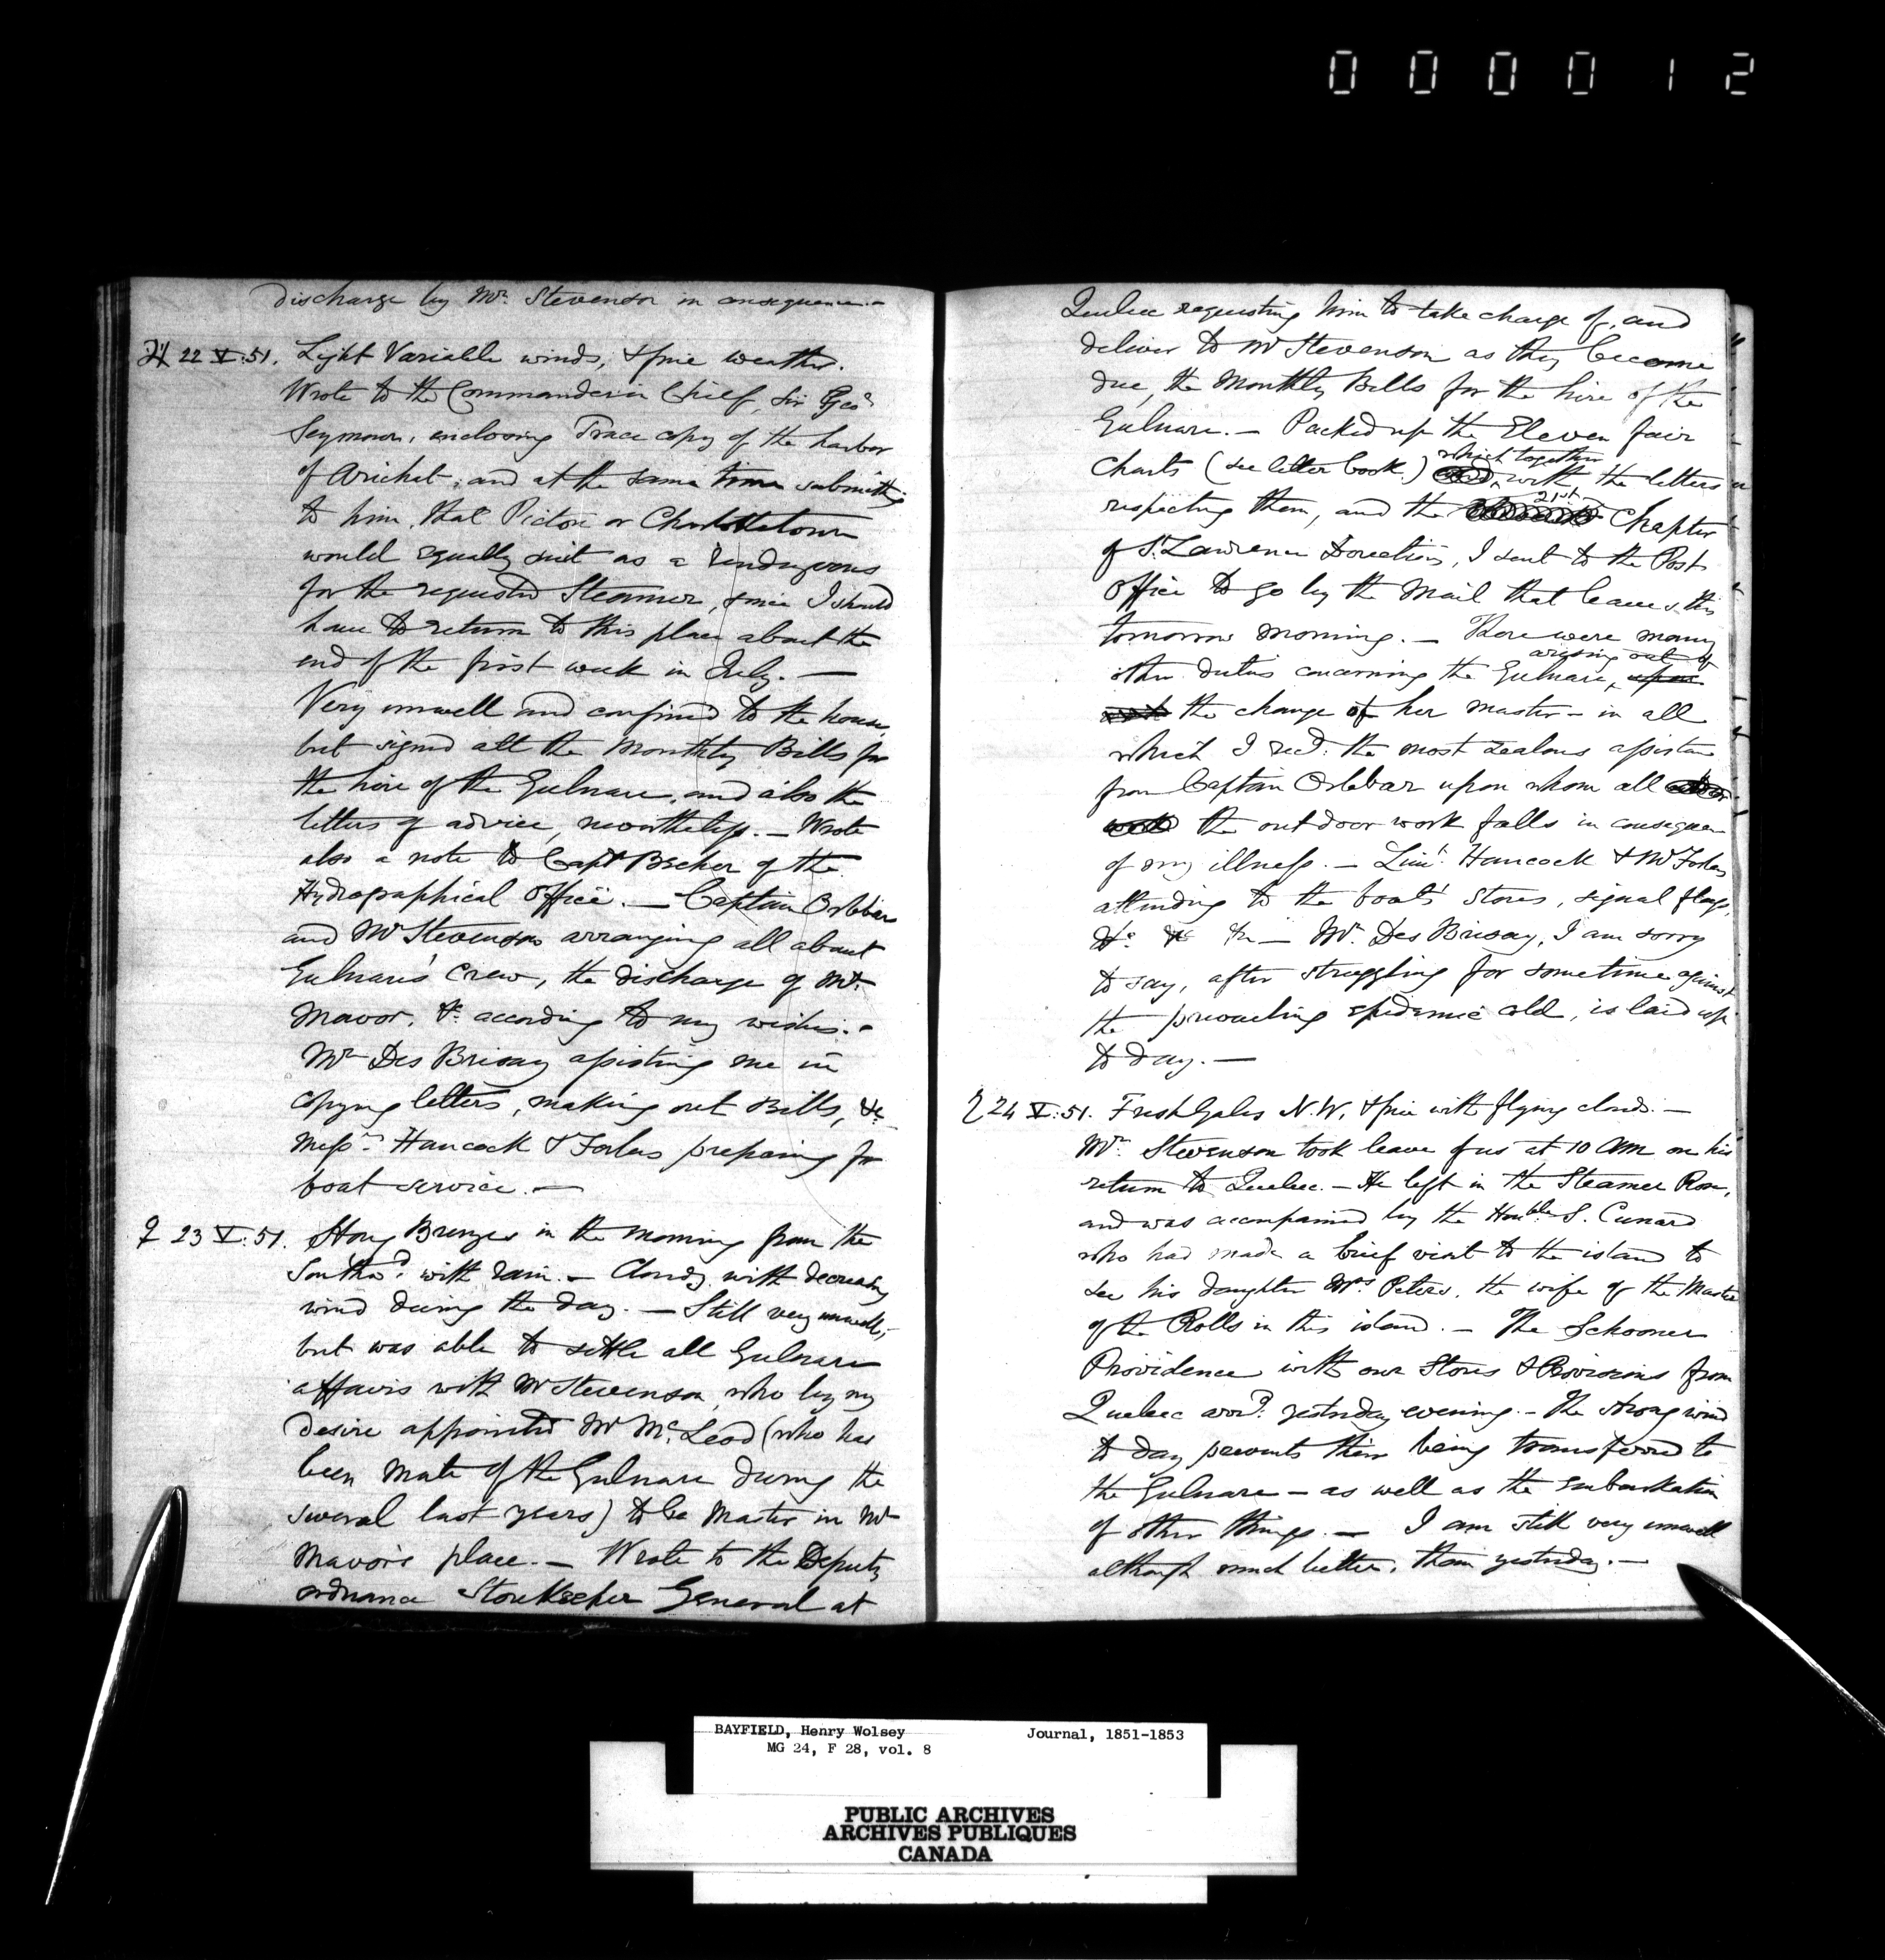 000012
discharge by Mr. Stevenson in consequence.-
♃ 22 V. 51. Light Variable winds, & fine weather.
Wrote to the Commander in Chief, Sir Geo.
Seymour, enclosing Trace copy of the harbor
of Arichat, and at the same time submitting
to him, that Pictou or Charlottetown
would equally suit as a rendezvous
for the requested Steamer, since I should
have to return to this place about the
end of the first week in July. —
Very unwell and confined to the house,
but signed all the Monthly Bills for
the hire of the Gulnare, and also the
letters of advice, nevertheless. — Wrote
also a note to Capt Becher of the
Hydrographical Office. — Captain Orlebar
and Mr Stevenson arranging all about
Gulnare's Crew, the discharge of Mr.
Mavor, &c according to my wishes. -
Mr Des Brisay assisting me in
copying letters, making out Bills, &c
Messrs Hancock & Forbes preparing for
boat service. —
♀ 23 V. 51. Strong Breezes in the morning from the
Southwd. with rain. — Cloudy with decreasing
wind during the day. — Still very unwell,
but was able to settle all Gulnare
affairs with Mr Stevenson, who by my
desire appointed Mr McLeod (who has
been Mate of the Gulnare during the
several last years) to be Master in Mr
Mavor's place. — Wrote to the Deputy
ordnance Storekeeper General at
Quebec requesting him to take charge of, and
deliver to Mr Stevenson as they become
due, the Monthly Bills for the hire of the
Gulnare. — Packed up the Eleven fair
which together
Charts (see letter book) with the letters
21st
respecting them, and the Chapter
of St. Lawrence Directions, I sent to the Post
Office to go by the Mail that leaves this
tomorrow morning. — There were many
arising out of
other duties concerning the Gulnare, upon
the change of her master - in all
which I recd. the most zealous assistance
from Captain Orlebar upon whom all
the out door work falls in consequence
of my illness. — Lieut. Hancock & Mr Forbes
attending to the boats' stores, signal flags,
&c &c &c — Mr. Des Brisay, I am sorry
to say, after struggling for sometime against
the prevailing epidemic cold, is laid up
to day. —
♄ 24 V. 51. Fresh Gales N.W. & fine with flying clouds. —
Mr. Stevenson took leave of us at 10 AM on his
return to Quebec. — He left in the Steamer Rose,
and was accompanied by the Honble S. Cunard
who had made a brief visit to the island to
see his daughter Mrs Peters, the wife of the Master
of the Rolls in this island. — The Schooner
Providence with our Stores & Provisions from
Quebec arrd. yesterday evening. — The strong wind
to day prevents their being transferred to
the Gulnare — as well as the embarkation
of other things. — I am still very unwell
although much better, than yesterday. —
BAYFIELD, Henry Wolsey Journal, 1851-1853
MG 24, F 28, vol. 8
PUBLIC ARCHIVES
ARCHIVES PUBLIQUES
CANADA